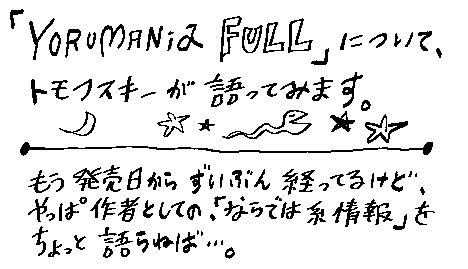 「YORUMANIA FULL」について、
トモフスキーが語ってみます。
もう発売日からずいぶん経ってるけど、
やっぱ作者としての、「ならでは系情報」を
ちょっと語らねば…。